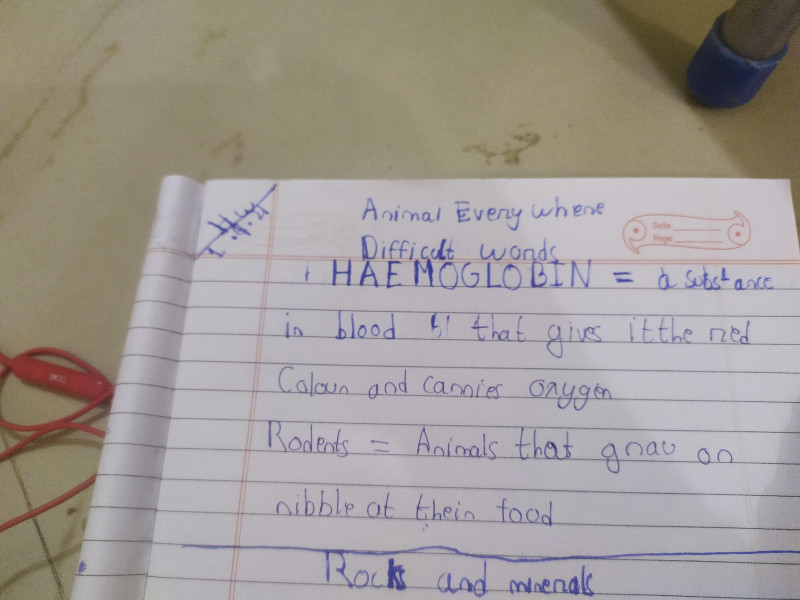 Animal Every where
Difficult words
Date
Page
1 HAEMOGLOBIN = a substance
in blood that gives it the red
Colour and carries oxygen
Rodents = Animals that gnaw on
nibble at their food
Rocks and minerals